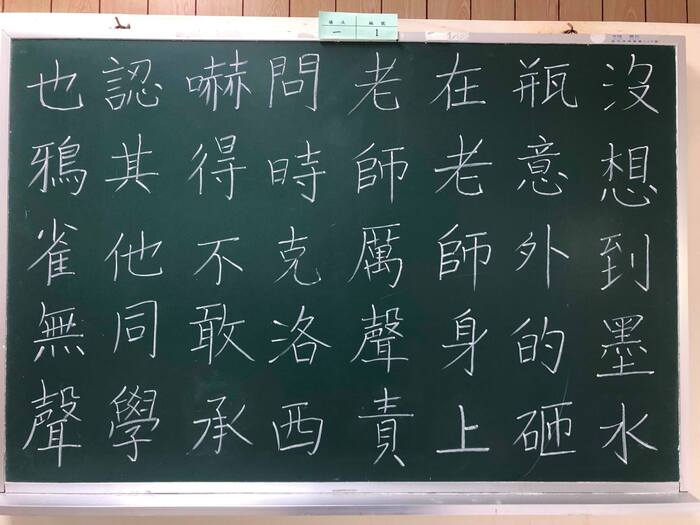 沒想到墨水
瓶意外的砸
在老師身上
老師厲聲責
問時克洛西
嚇得不敢承
認其他同學
也鴉雀無聲
一 1